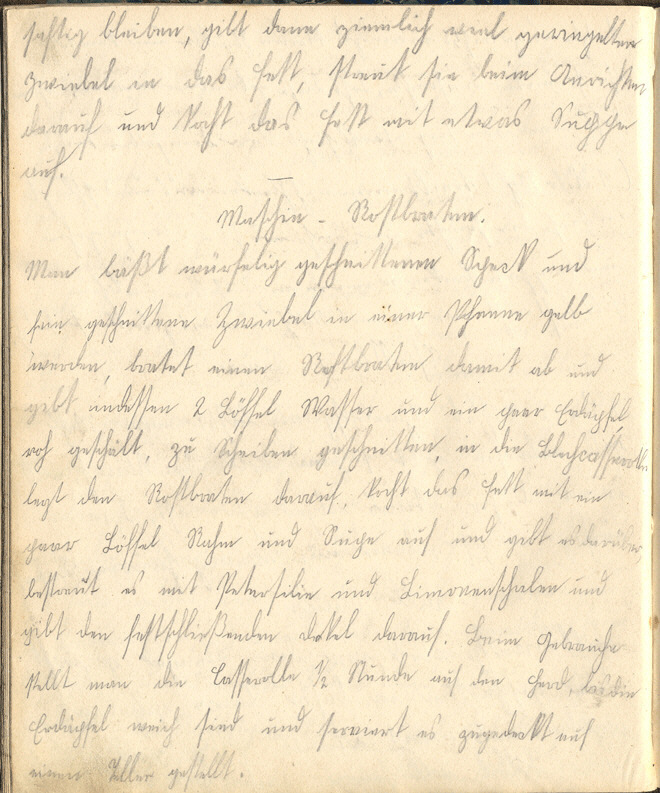 saftig bleiben, gibt dann ziemlich viel geringelten
Zwiebel in das Fett, streut sie beim Anrichten
darauf und kocht das Fett mit etwas Suppe
auf.
Maschin - Rostbraten.
Man läßt würfelig geschnittenen Speck und
fein geschnittene Zwiebel in einer Pfanne gelb
werden, bratet einen Rostbraten damit ab und
gibt indessen 2 Löffel Wasser und ein paar Erdäpfel,
roh geschält, zu Scheiben geschnitten, in die Blechcasserolle
legt den Rostbraten darauf, kocht das Fett mit ein
paar Löffel Rahm und Supe auf und gibt es darüber,
bestreut es mit Petersilie und Limonenschalen und
gibt den festschließenden Dekel darauf. Beim Gebrauche
stellt man die Casserolle ½ Stunde auf den Herd, bis die
Erdäpfel weich sind und serviert es zugedeckt auf
einen Teller gestellt.